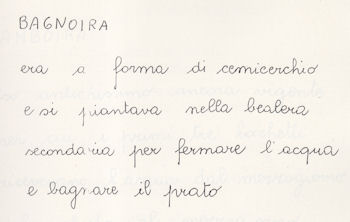 BAGNOIRA
era a forma di cemicerchio
e si piantava nella bealera
secondaria per fermare l'acqua
e bagnare il prato